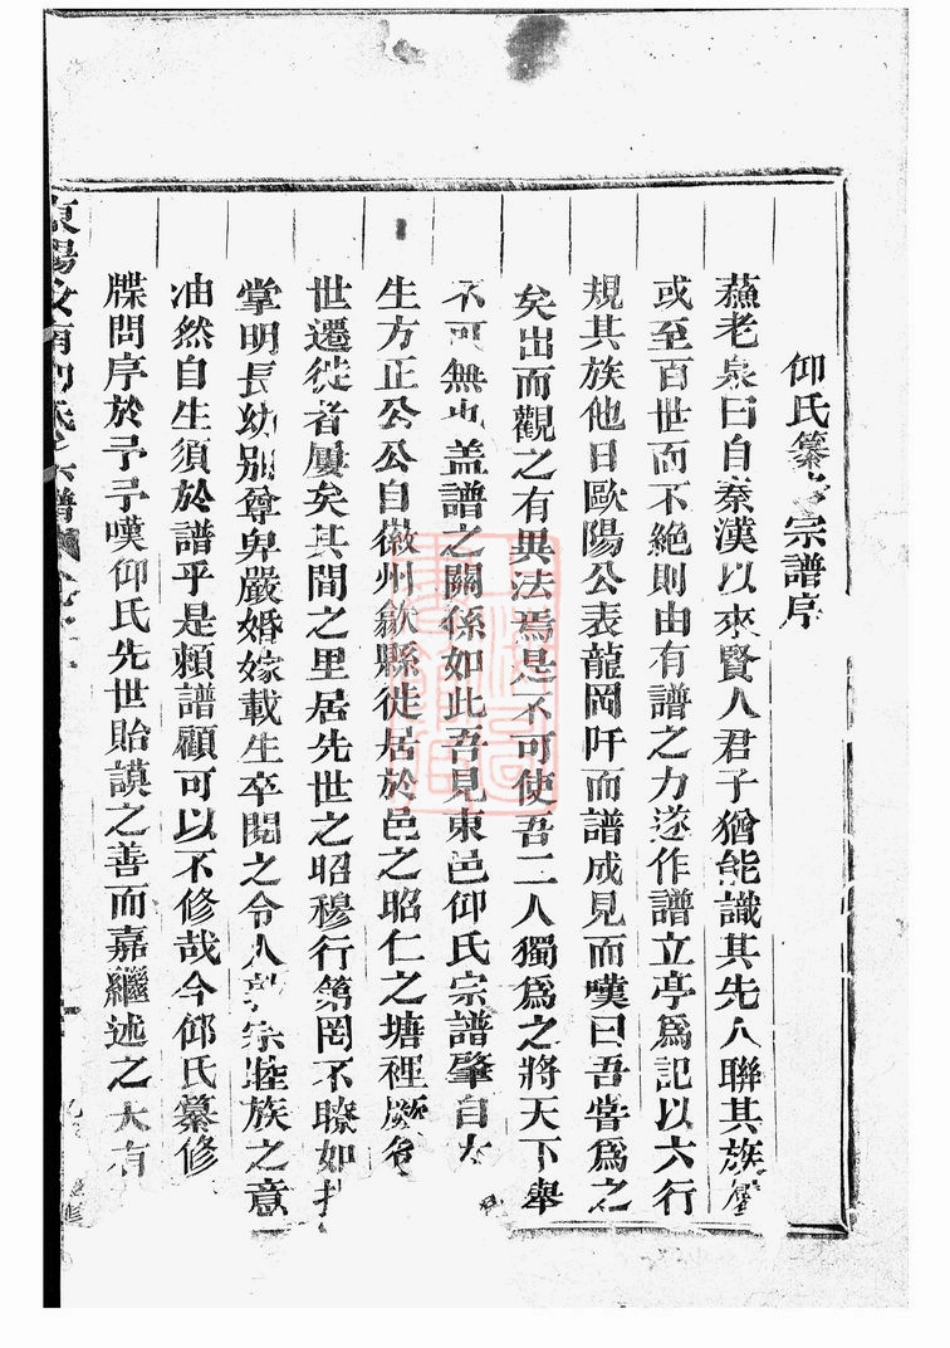 仰氏纂修宗譜序
蘓老泉曰自秦漢以來賢人君子猶能識其先人聯其族屬
或至百世而不絶則由有譜之力遂作譜立亭爲記以六行
規其族他日歐陽公表龍岡阡而譜成見而嘆曰吾甞爲之
矣出而觀之有異法焉是不可使吾二人獨爲之將天下舉
不可無也盖譜之關係如此吾見東邑仰氏宗譜肇自
生方正公公自徽州歙縣徙居於邑之昭仁之塘裡厥後
世遷徙者屢矣其間之里居先世之昭穆行第罔不瞭如
掌明長幼别尊卑嚴婚嫁載生卒閱之令人敦宗睦族之意
油然自生須於譜乎是賴譜顧可以不修哉今仰氏纂修
牒問序於予予嘆仰氏先世貽謨之善而嘉繼述之大有